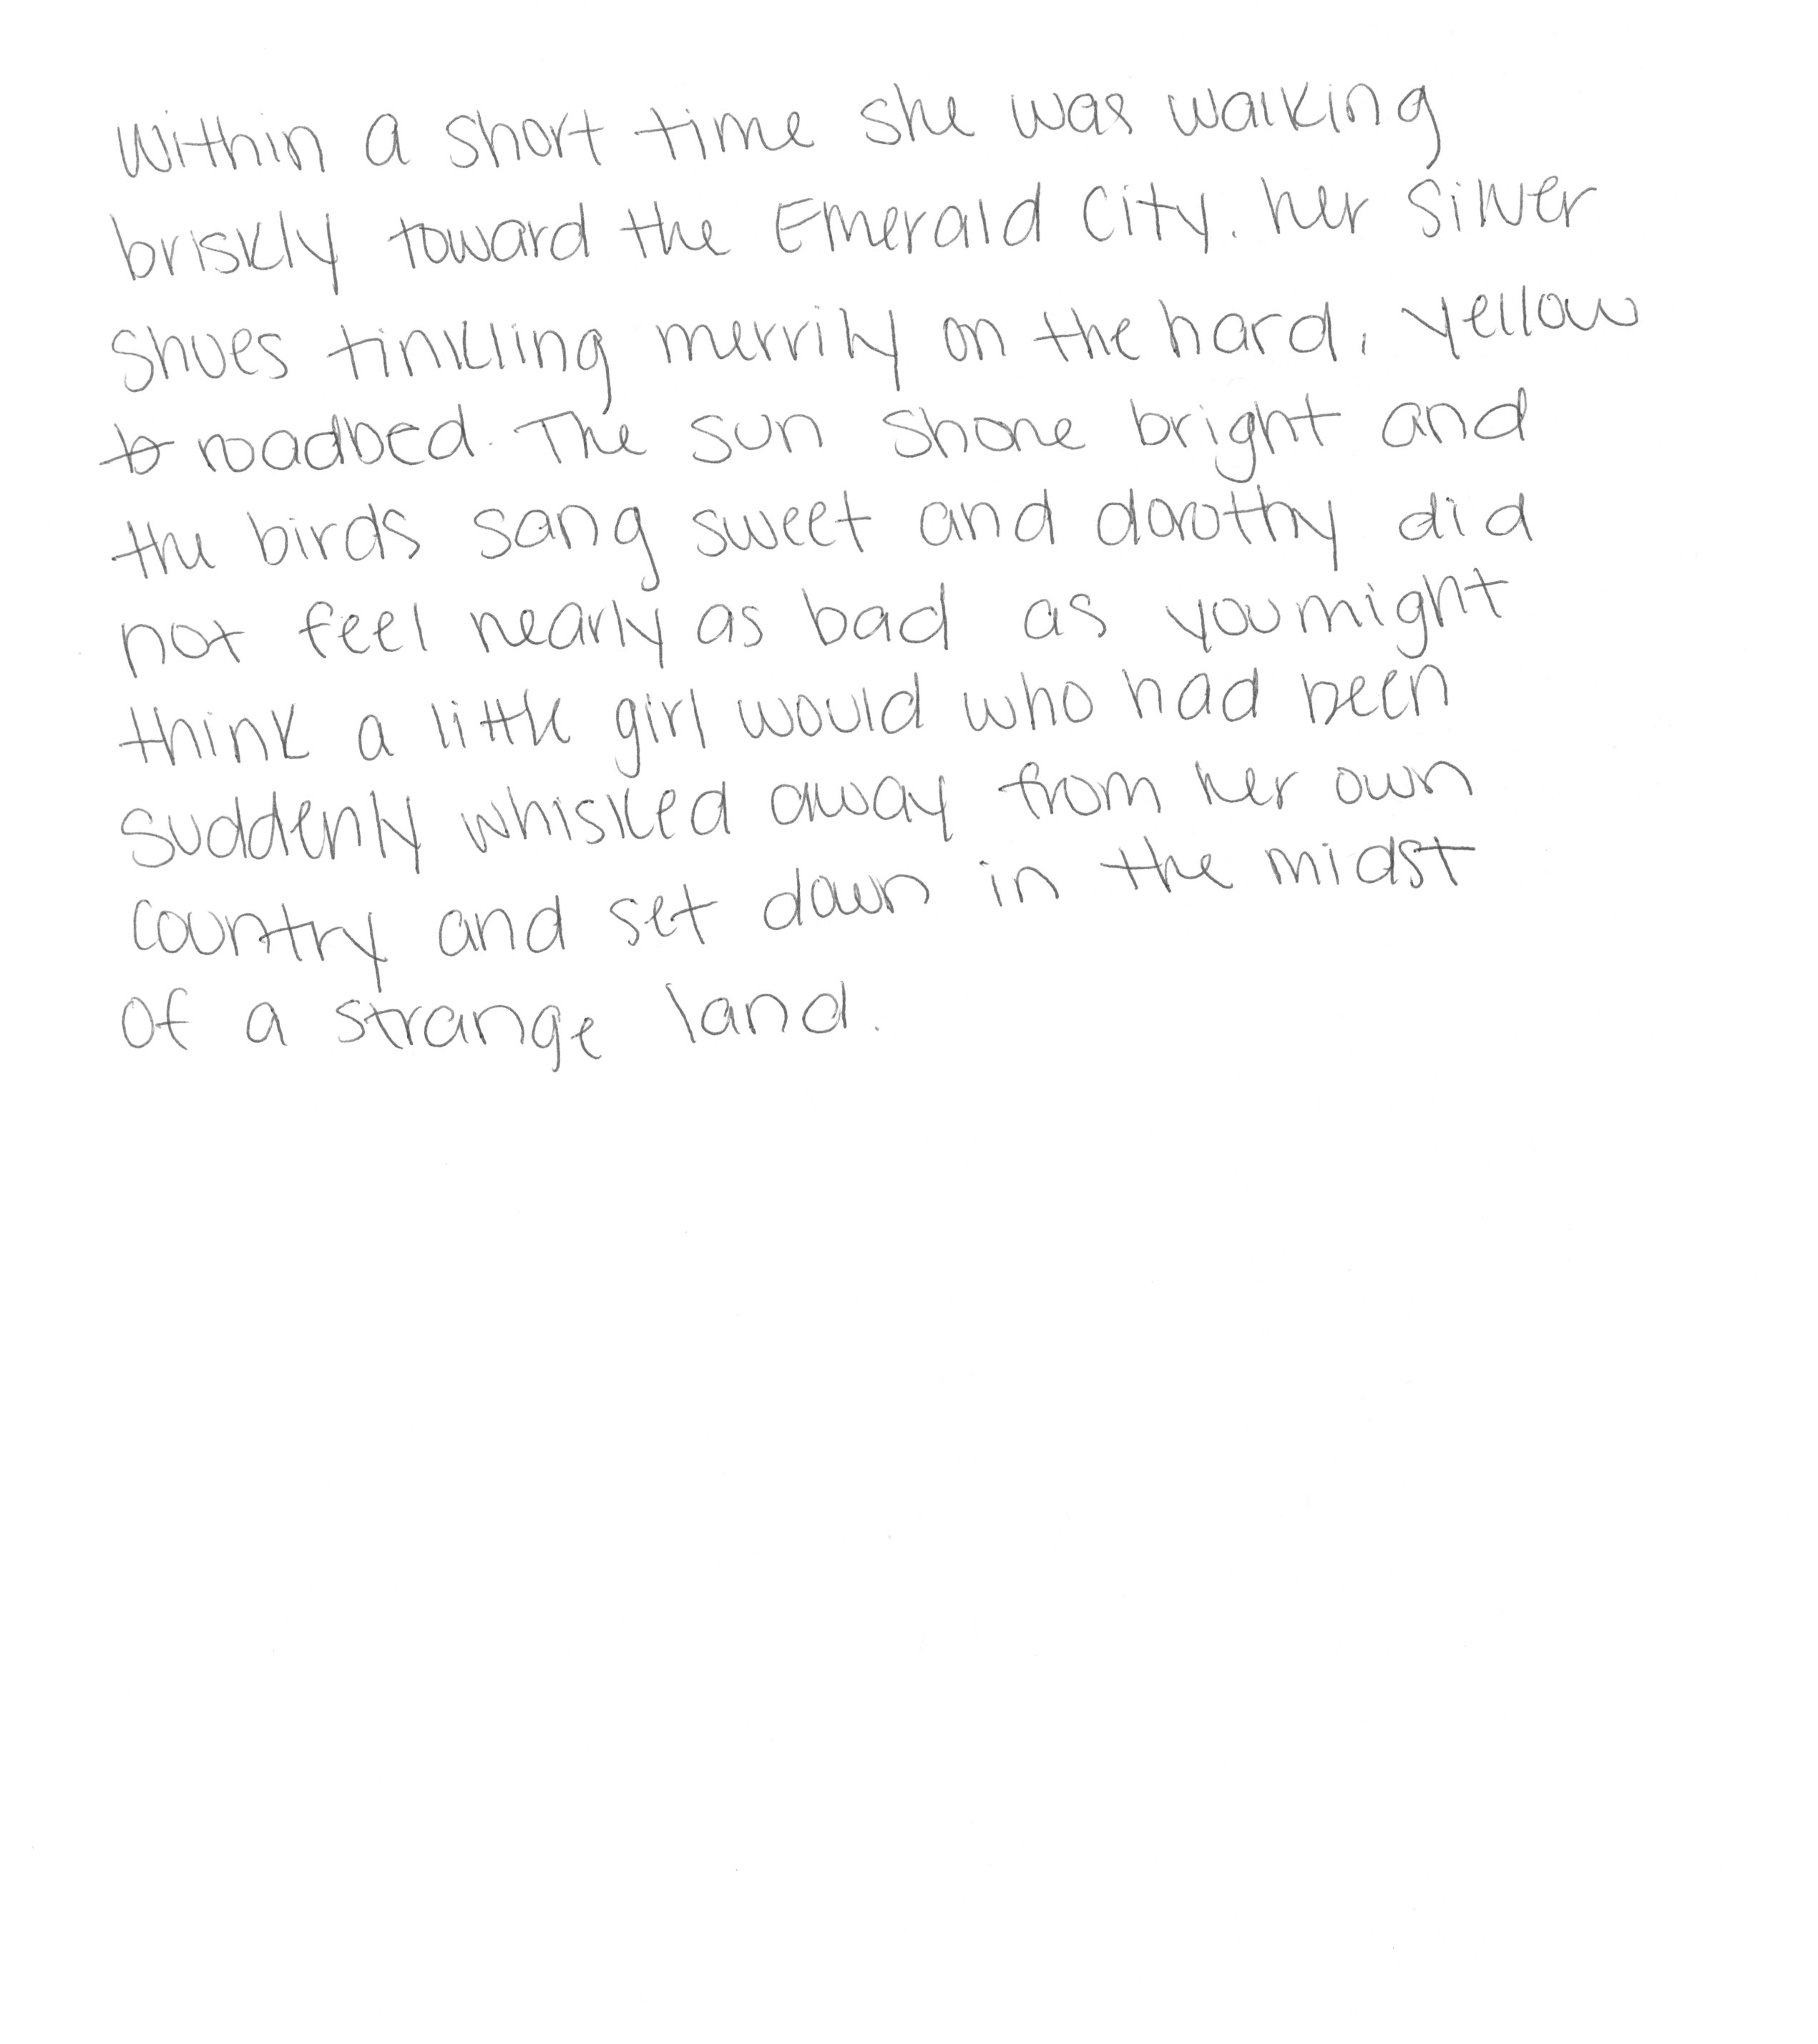 Within a short time she was walking
briskly toward the Emerald City. her Silver
Shoes tinkling merrily on the hard, yellow
roadbed. The sun shone bright and
the birds sang sweet and dorothy did
not feel nearly as bad as you might
think a little girl would who had been
suddenly whisked away from her own
country and set down in the midst
of a strange land.